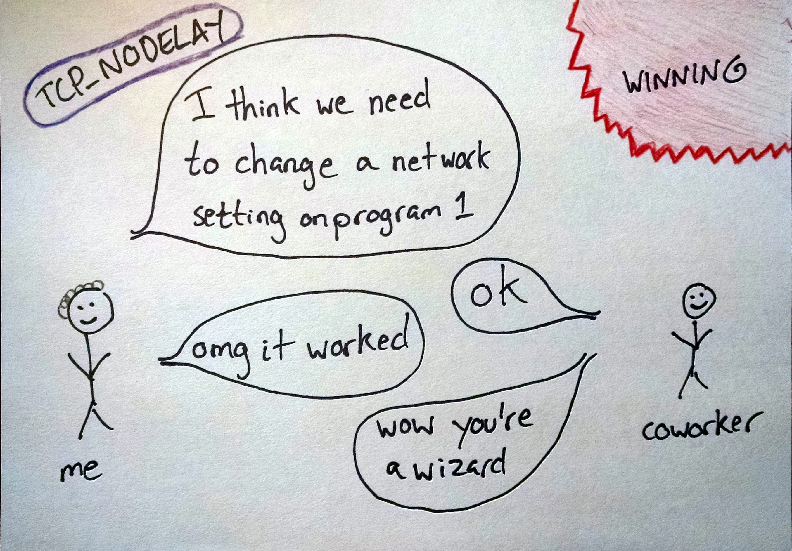 TCP_NODELAY
WINNING
I think we need
to change a network
setting on program 1
ok
omg it worked
wow you're
a wizard
me
coworker